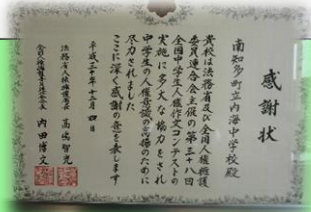 感謝状
南知多町立内海中学校殿
貴校は法務省及び全国人権擁護
委員連合会主催の第三十八回
全国中学生人権作文コンテストの
実施に多大な協力をされ
中学生の人権意識の高揚のために
尽力されました
ここに深く感謝の意を表します
平成三十年十二月四日
法務省人権擁護局長 高嶋智光
全国人権擁護委員連合会長 内田博文